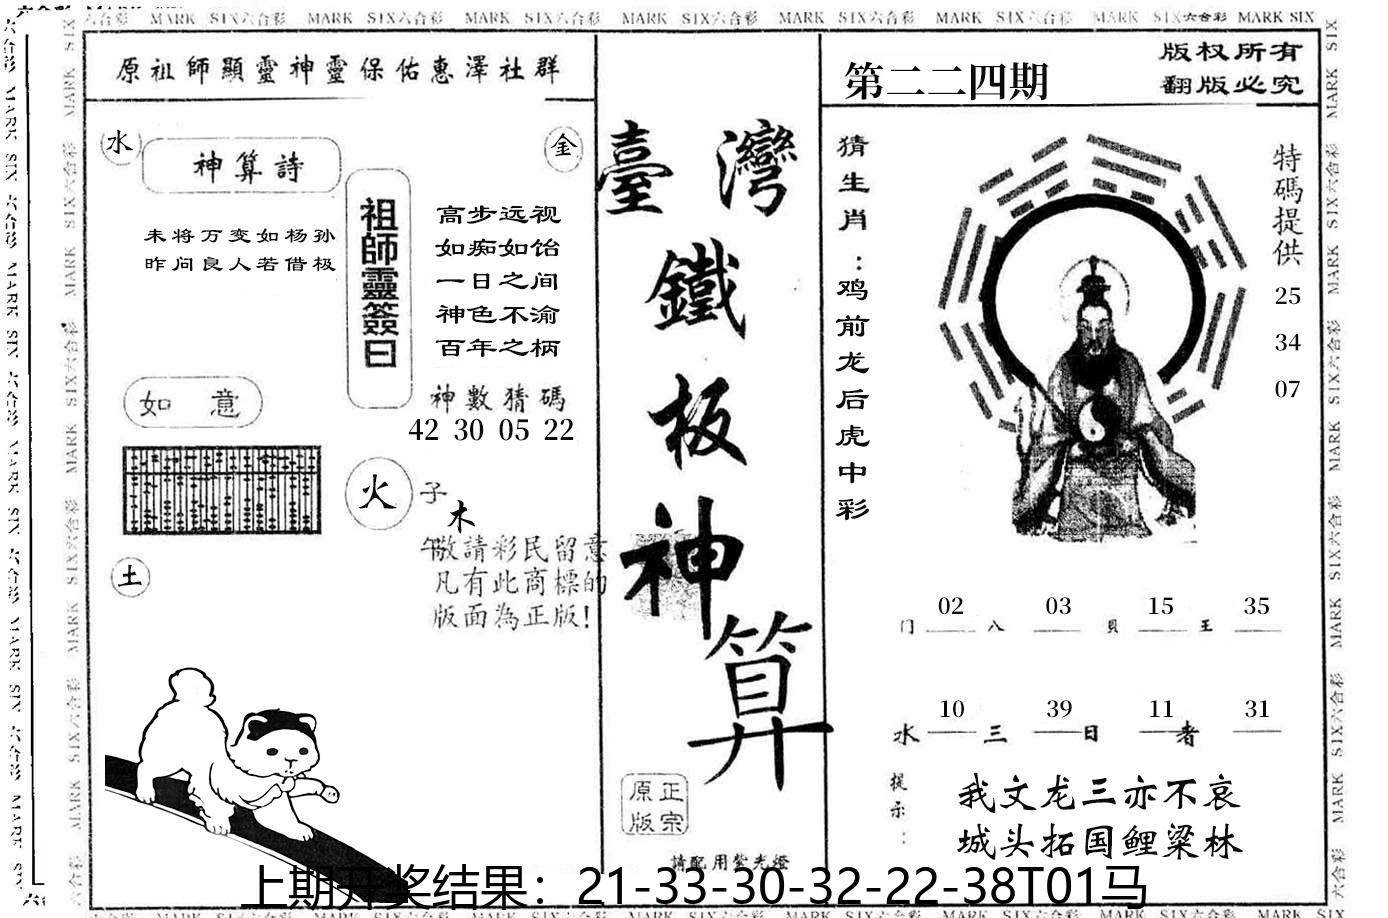 MARK SIX六合彩 MARK SIX六合彩 MARK SIX六合彩 MARK SIX六合彩 MARK SIX六合彩 MARK SIX六合彩 MARK SIX六合彩 MARK SIX
原祖師顯靈神靈保佑惠澤社群
水
神算詩
金
未将万变如杨孙
昨问良人若借极
祖師靈簽曰
高步远视
如痴如饴
一日之间
神色不渝
百年之柄
神數猜碼
42 30 05 22
如意
火
子
木
午
敬請彩民留意
凡有此商標的
版面為正版!
土
臺灣
鐵
板
神
算
正宗
原版
請配用紫光燈
第二二四期
版权所有
翻版必究
猜生肖:鸡前龙后虎中彩
特碼提供
25
34
07
02 03 15 35
门 八 貝 王
10 39 11 31
水 三 日 者
提示:
我文龙三亦不哀
城头拓国鲤梁林
上期开奖结果：21-33-30-32-22-38T01马